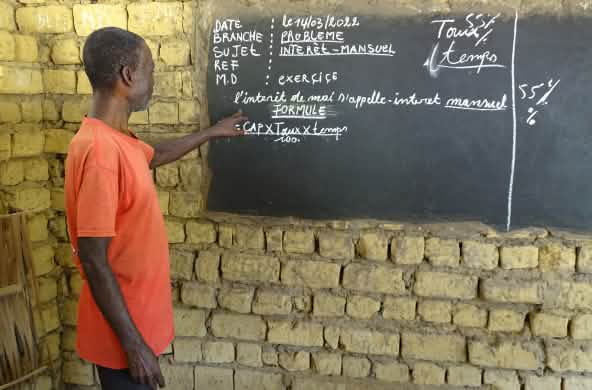 DATE : le 14/03/2022
BRANCHE : PROBLEME
SUJET : INTERÊT-MANSUEL
REF :
M.D : EXERCIÇE
l'interit de mai s'appelle-interet mansuel
FORMULE
= CAP X Taux x temps
100
Taux 55%
%
temps
55%
%